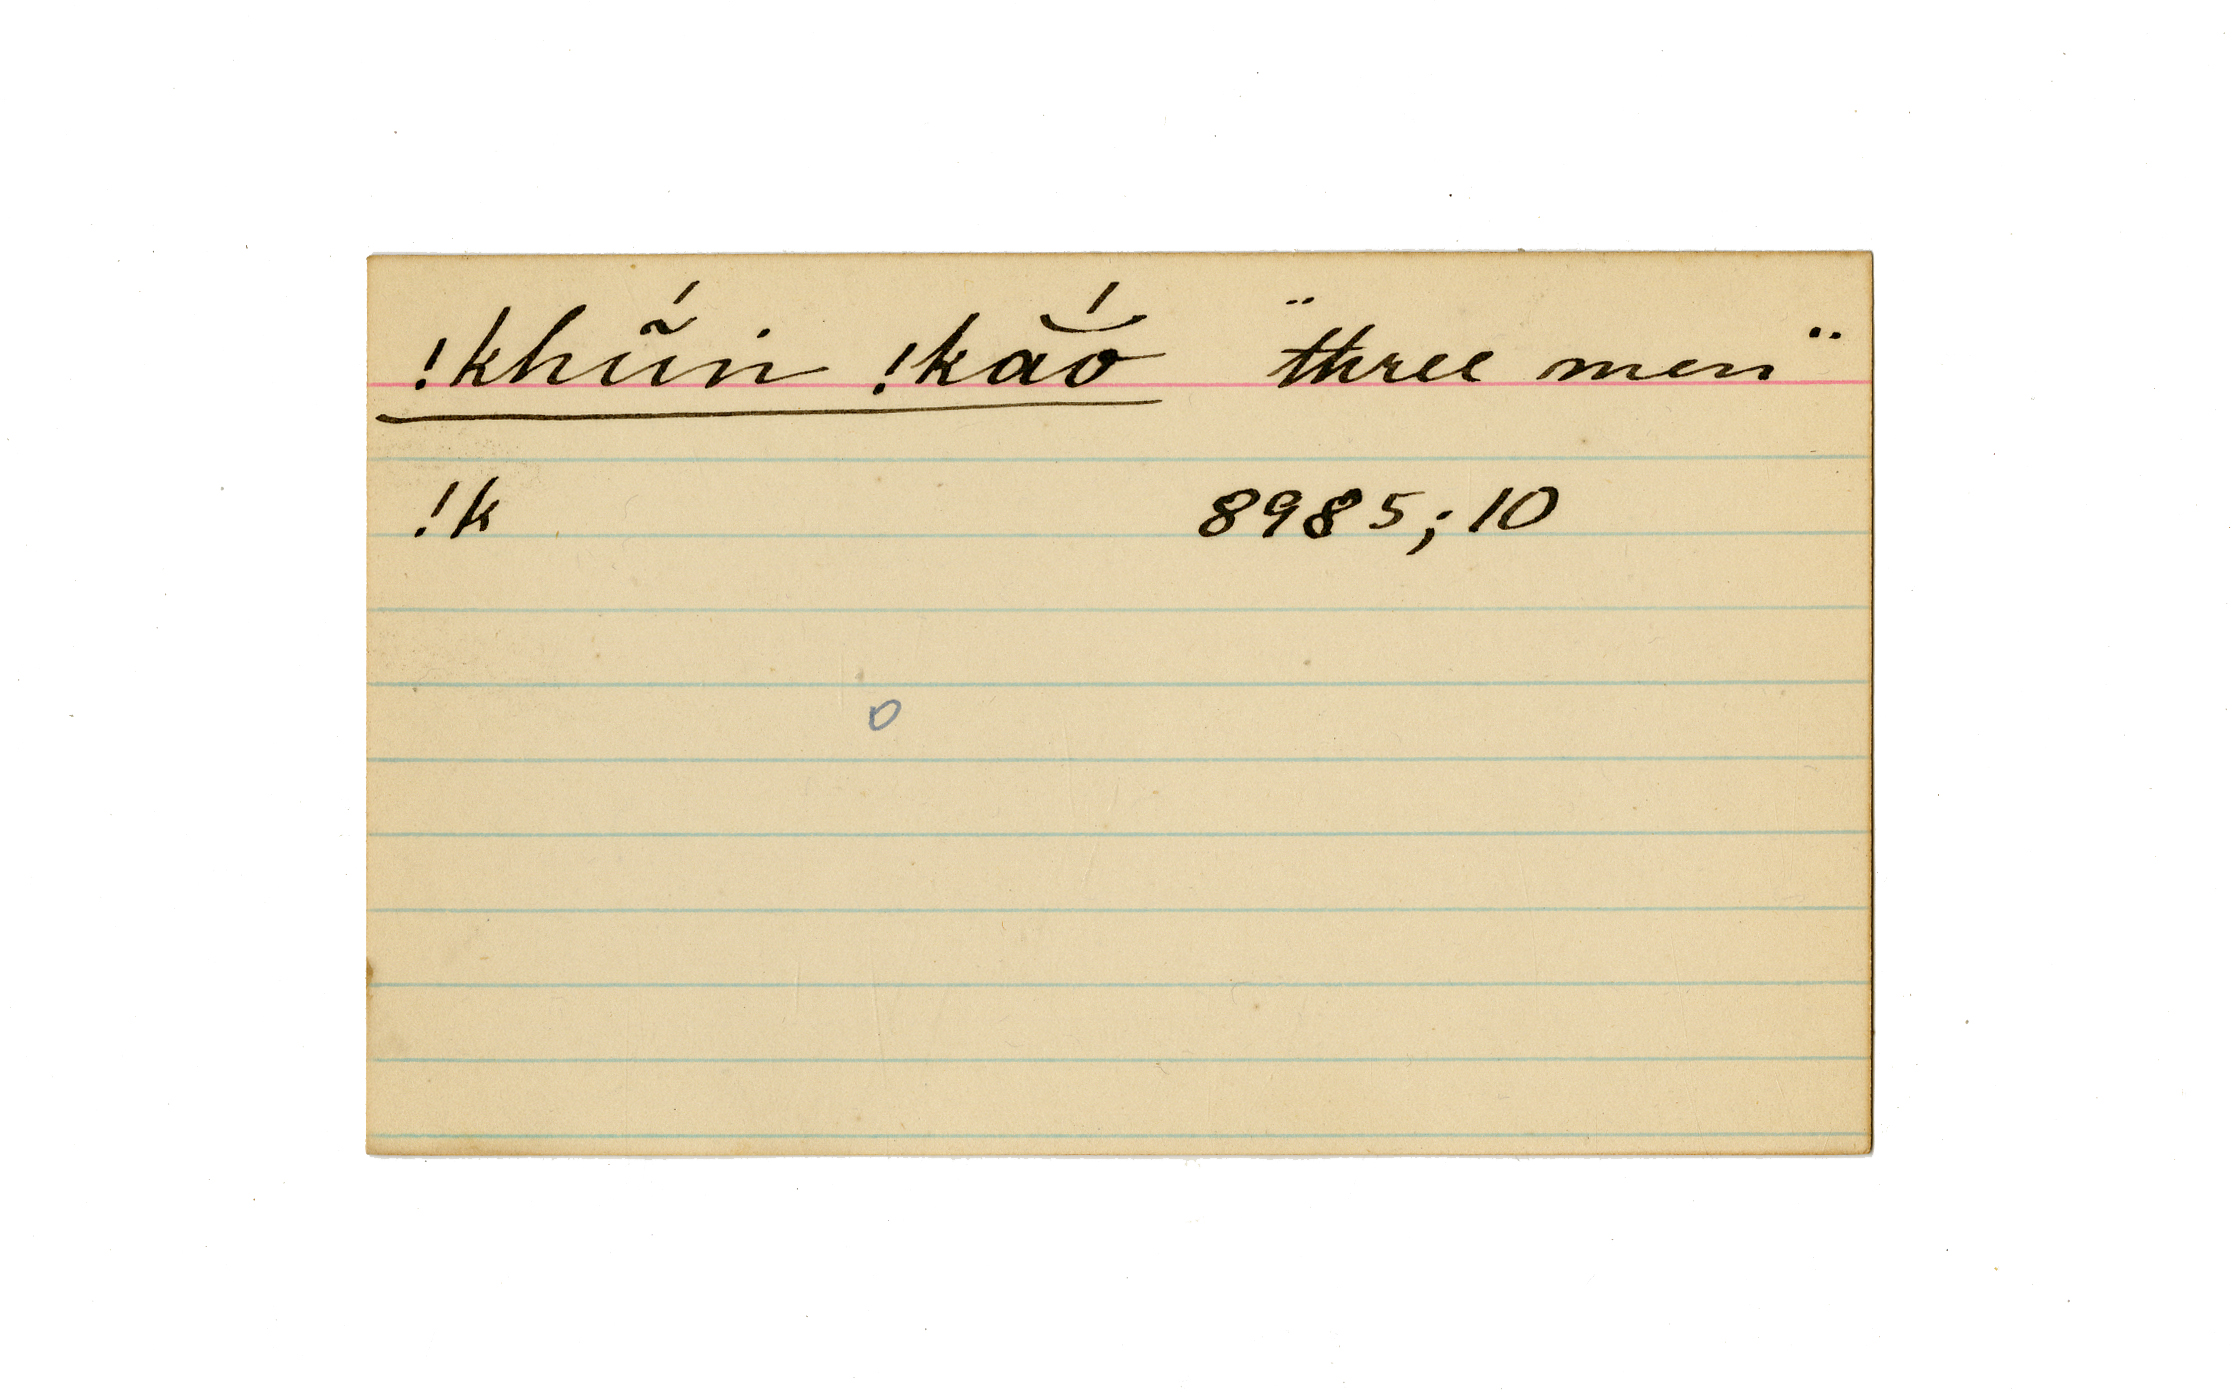 !khṹin !kắo "three men"
!k 8985; 10
o